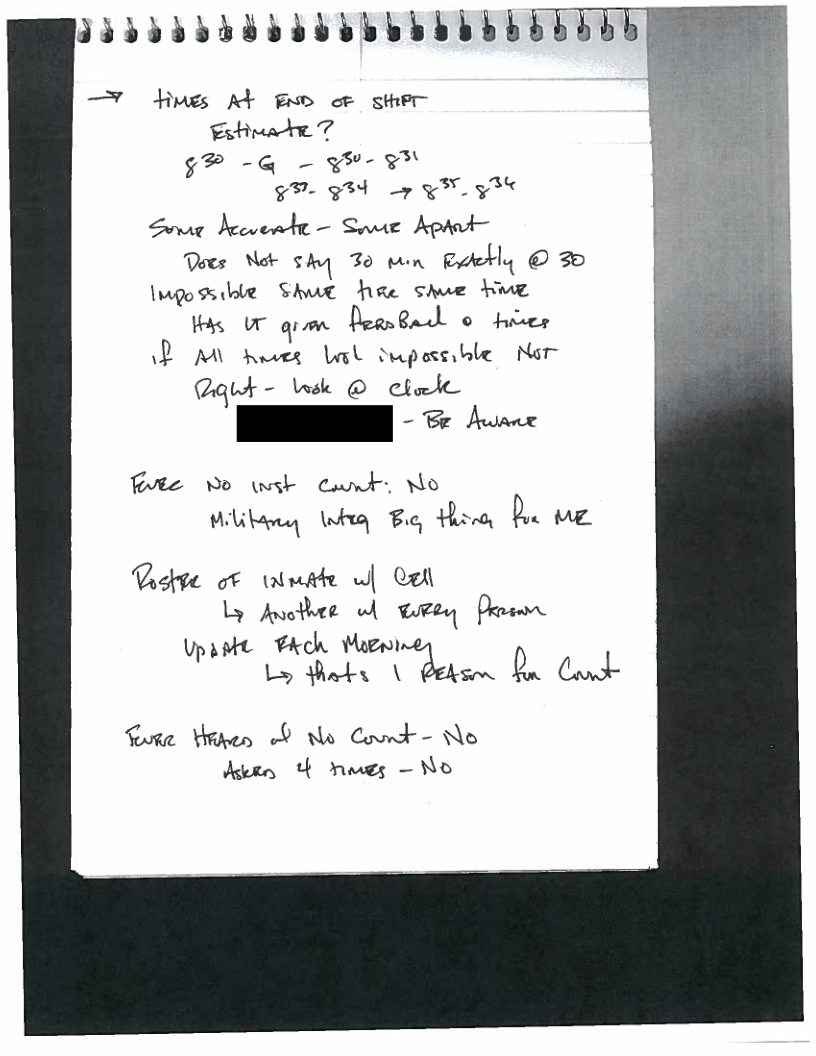 → times At END OF SHIFT
Estimate?
8³⁰ - G - 8³⁰ - 8³¹
8³³ - 8³⁴ → 8³⁵ - 8³⁶
Some Accurate - Some Apart
Does Not SAy 30 Min Exactly @ 30
Impossible SAme tier SAme time
HAs LT given FeedBack @ times
if All times look impossible Not
Right - look @ clock
- Be Aware
Ever No inst Count: No
Military Integ Big thing for ME
Roster of INMAte w/ Cell
↳ Another w/ Every Person
Update EAch Morning
↳ thats 1 REAson for Count
Ever Heard of No Count - No
Asked 4 times - No